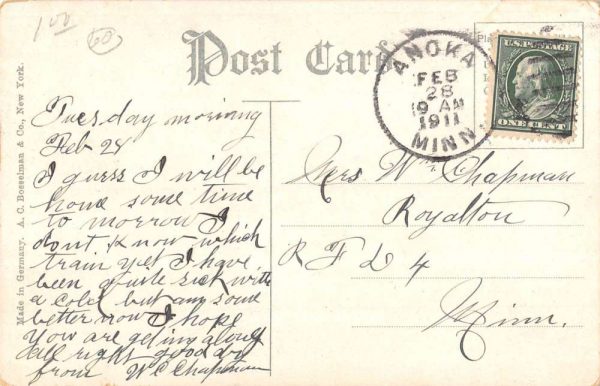 1.00
60
Post Card
ANOKA
FEB
28
9 AM
1911
MINN.
U.S. POSTAGE
ONE CENT
Made in Germany. A. C. Bosselman & Co., New York.
Tuesday morning
Feb 28
I guess I will be
home some time
to morrow I
dont know which
train yet I have
been quite sick with
a cold but am some
better now I hope
you are geting along
all right good by
from W C Chapman
Mrs W Chapman
Royalton
R F D 4
Minn.